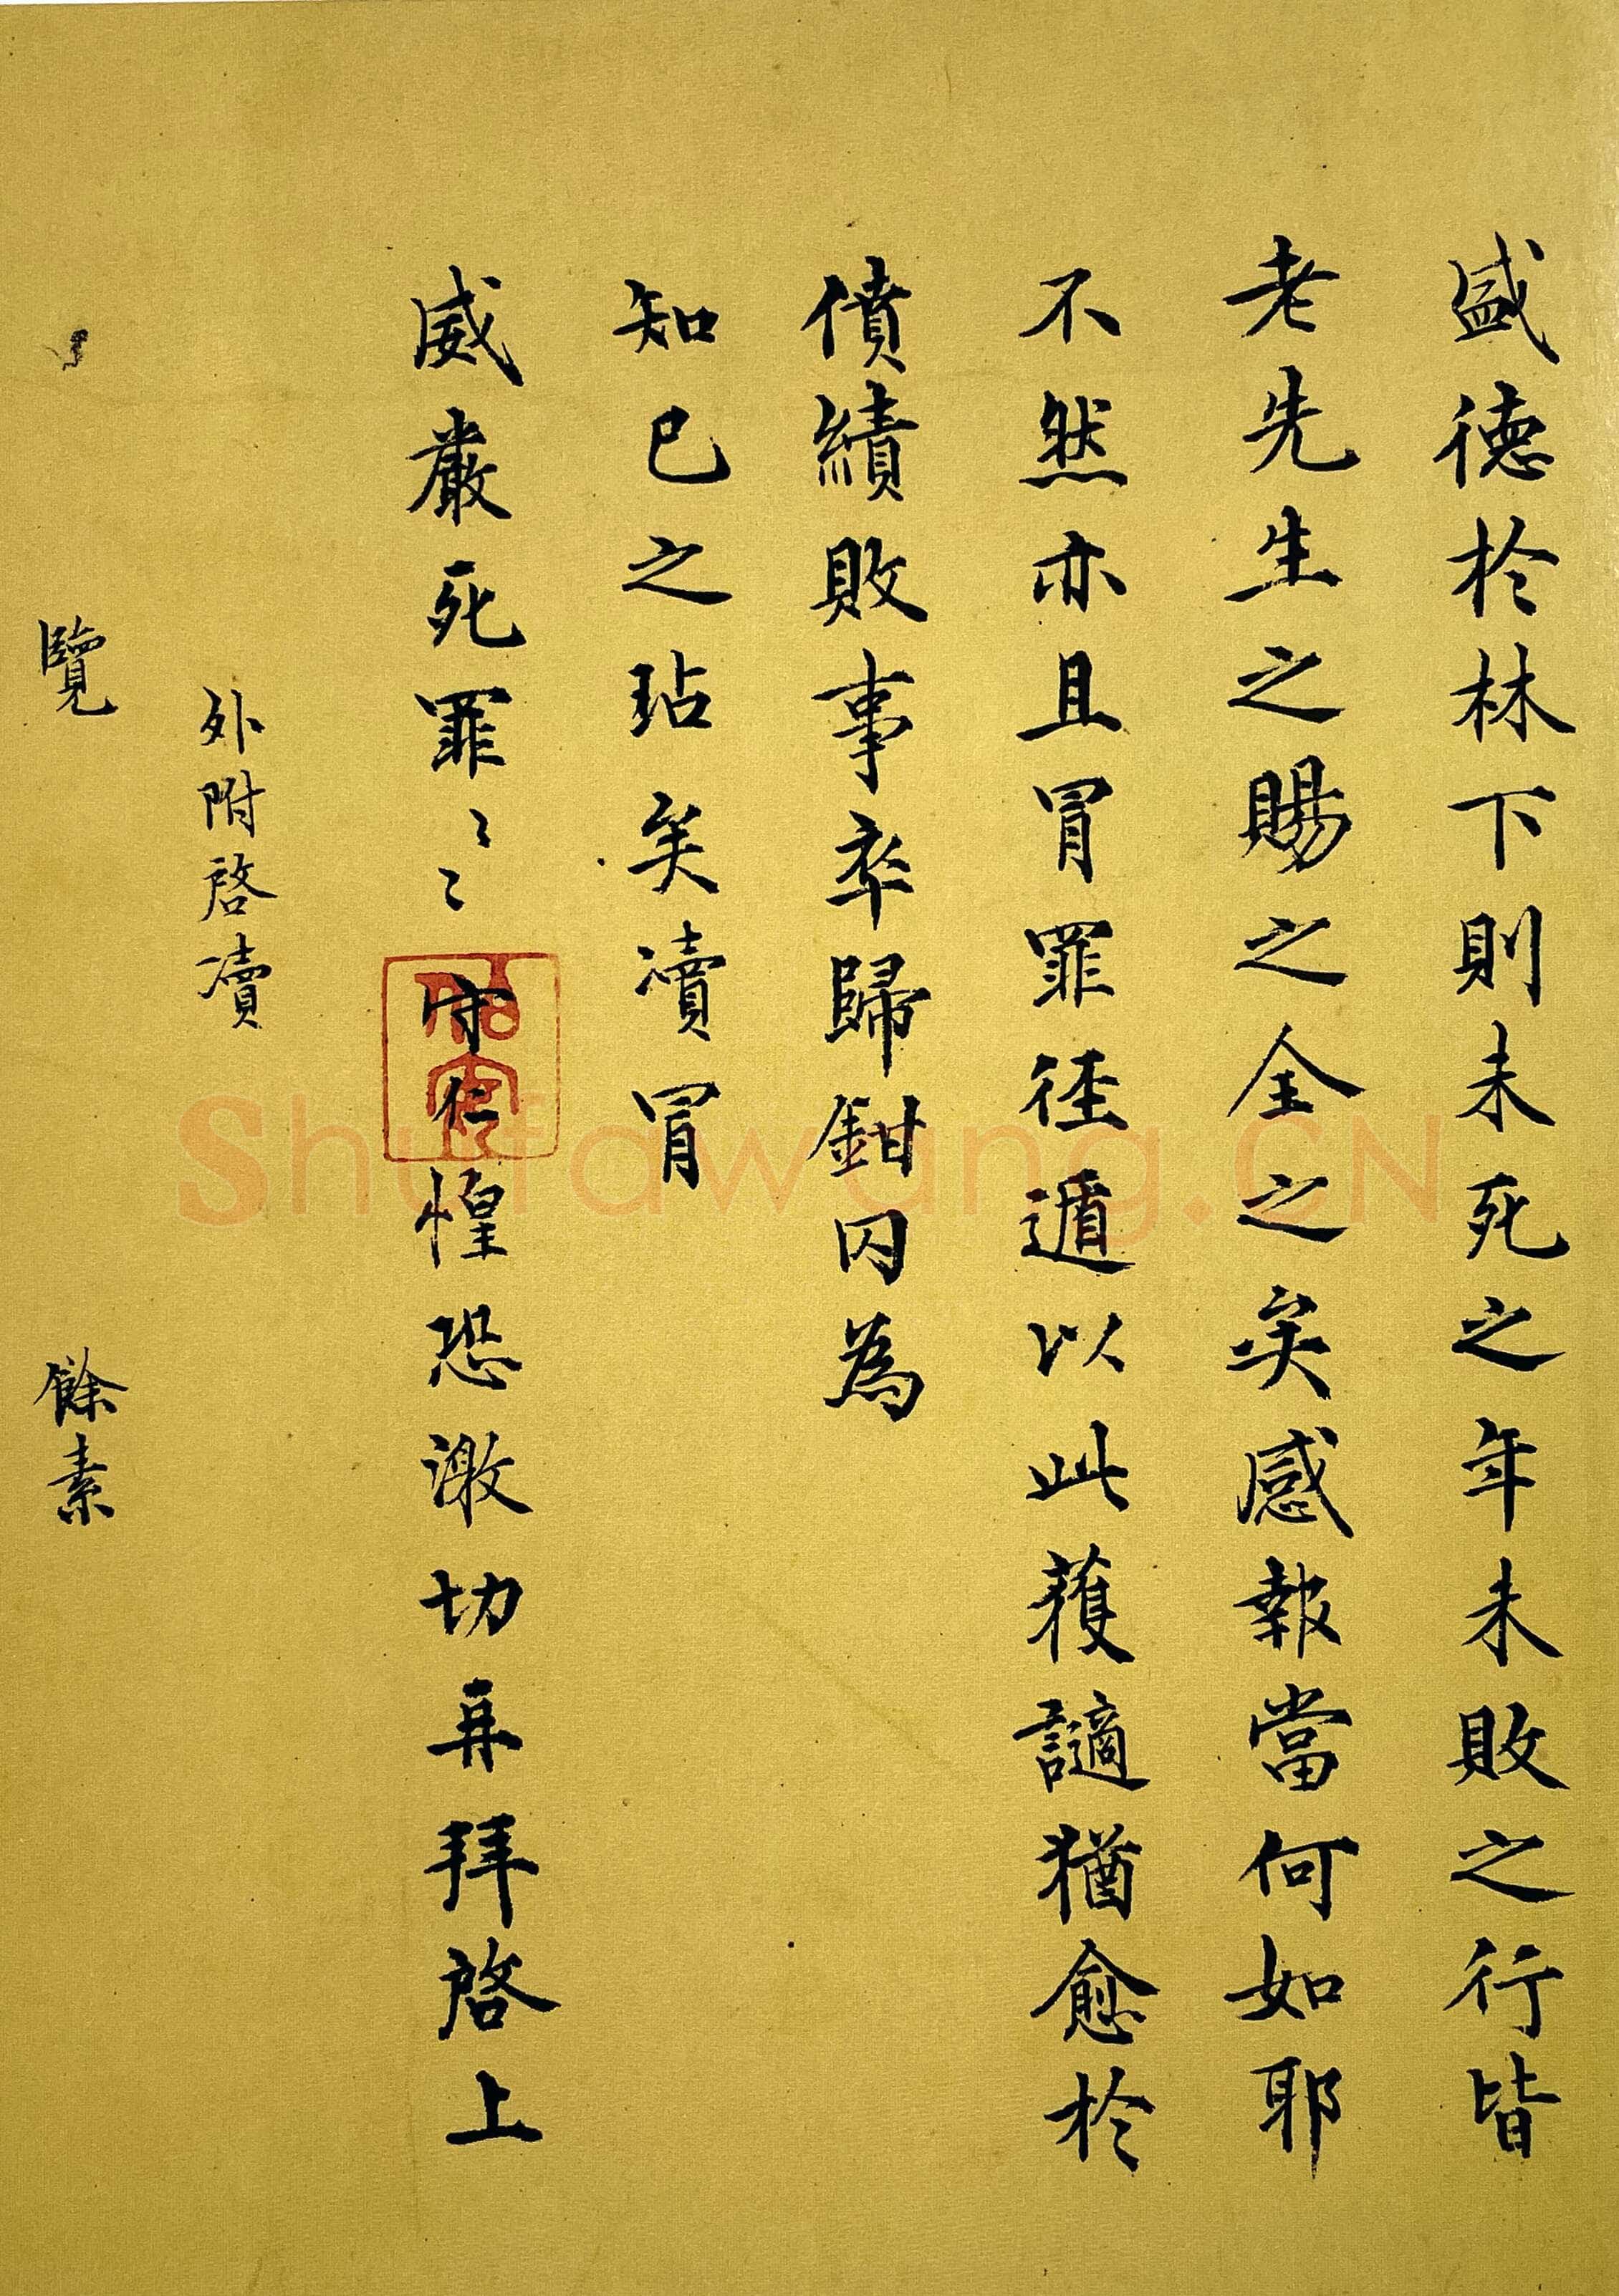 盛德於林下則未死之年未敗之行皆
老先生之賜之全之矣感報當何如耶
不然亦且冒罪徑遁以此蒦謫猶愈於
僨績敗事卒歸鉗囚為
知己之玷矣瀆冒
威嚴死罪〻〻守仁惶恐激切再拜啓上
外附啓瀆
覽 餘素
Shufawang.CN